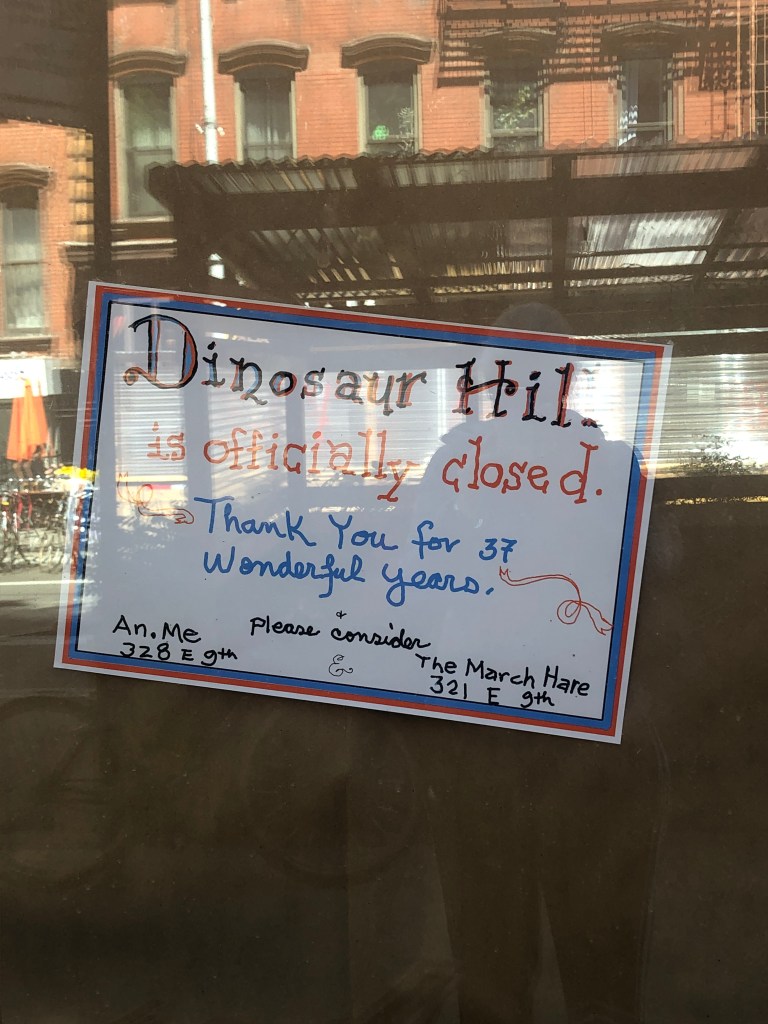 Dinosaur Hill
is officially closed.
Thank You for 37
Wonderful years.
+
please consider
An.Me
328 E 9th
&
The March Hare
321 E 9th